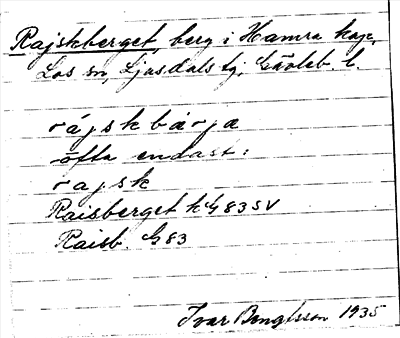 Rajskberget, berg i Hamra kap.,
Los sn, Ljusdals tg, Gävleb. l.
rájskbärja
ofta endast:
rajsk
Raisberget KG 83 SV
Raisb. G 83
Ivar Bengtsson 1935